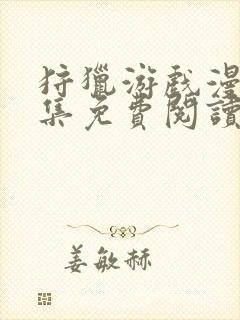 狩獵游戲漫
集免費閱讀
姜敏赫